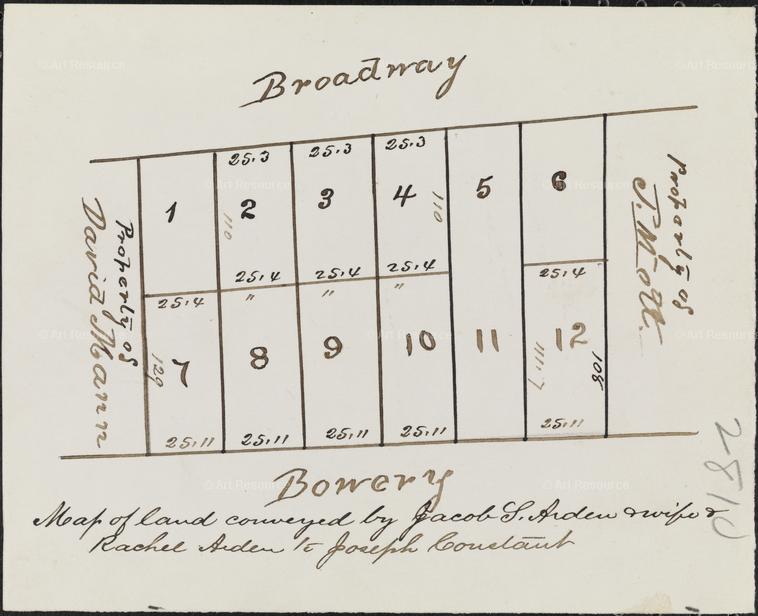 Broadway
25.3 25.3 25.3
1 2 3 4 5 6
110 110
25.4 25.4 25.4 25.4
25.4 " " "
7 8 9 10 11 12
129 111.7 108
25.11 25.11 25.11 25.11 25.11
Property of
David Mann
Property of
J. Mott.
Bowery
Map of land conveyed by Jacob S. Arden & wife &
Rachel Arden to Joseph Constant
2810
© Art Resource